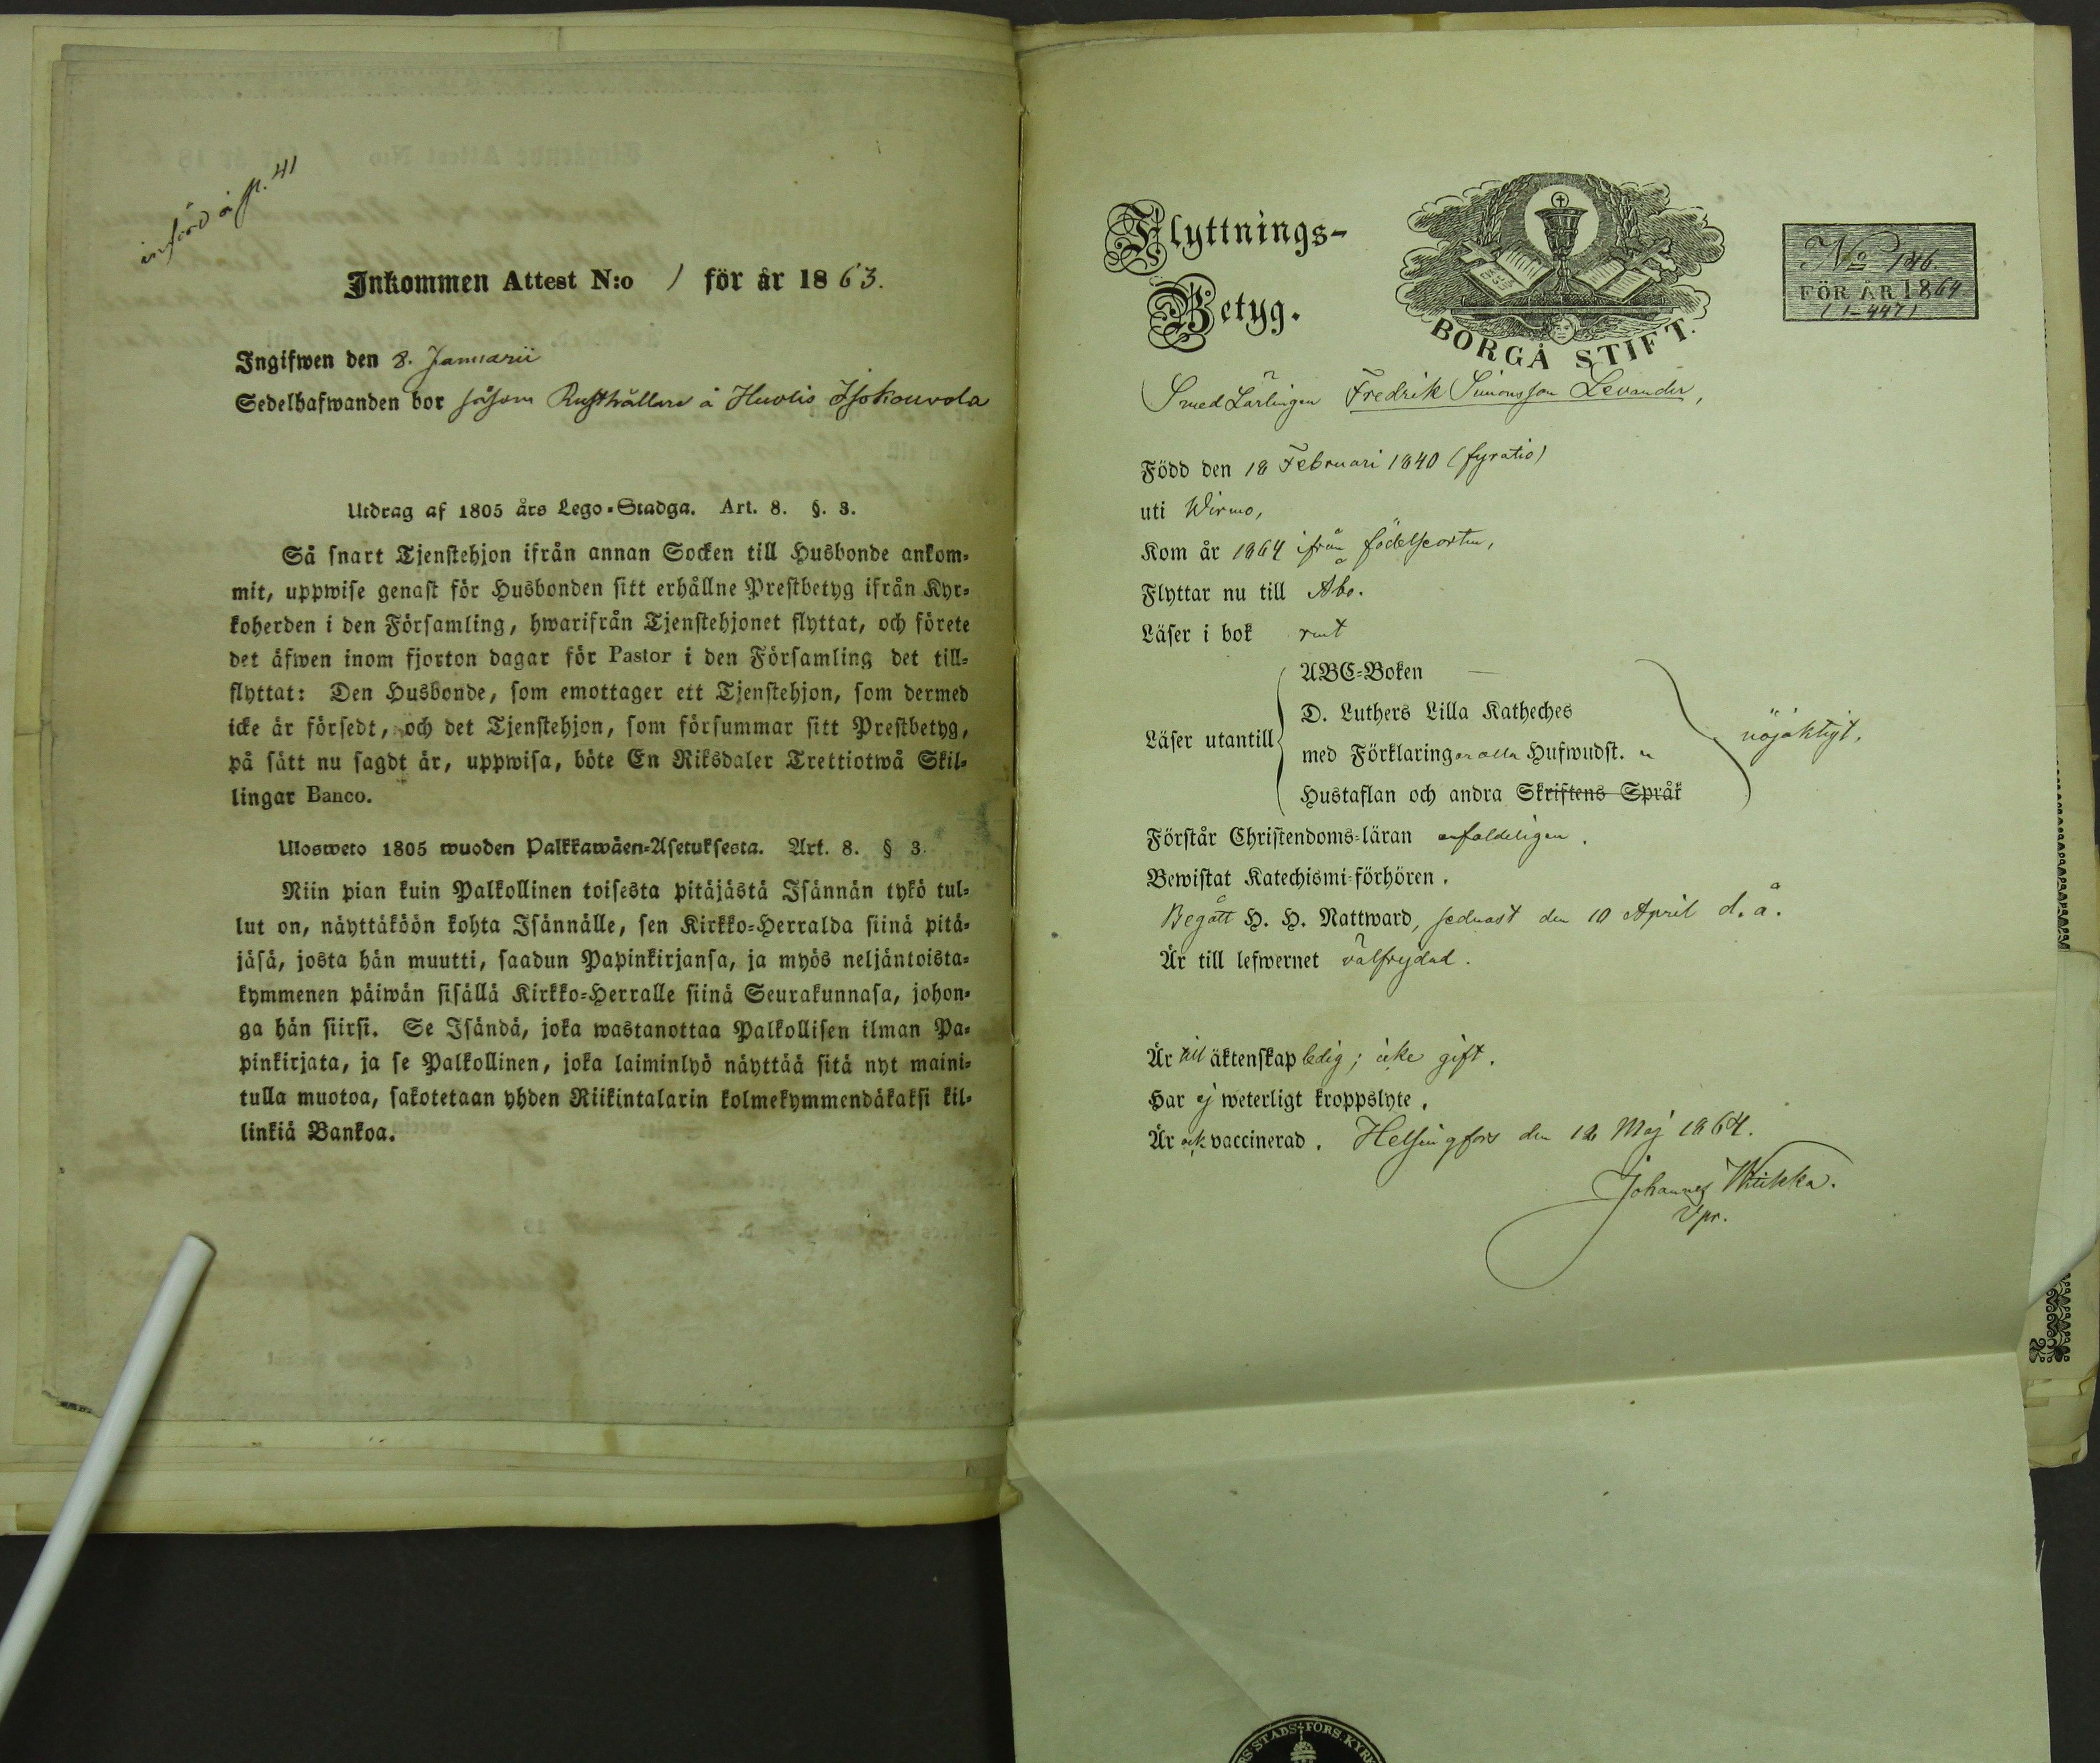 införd å p. 41
Inkommen Attest N:o 1 för år 1863.
Ingifwen den 8. Januarii
Sedelhafwanden bor såsom Rusthållare å Huvlis Isokouvola
Utdrag af 1805 års Lego-Stadga. Art. 8. §. 3.
Så snart Tjenstehjon ifrån annan Socken till Husbonde ankom-
mit, uppwise genast för Husbonden sitt erhållne Prestbetyg ifrån Kyr-
koherden i den Församling, hwarifrån Tjenstehjonet flyttat, och förete
det äfwen inom fjorton dagar för Pastor i den Församling det till-
flyttat: Den Husbonde, som emottager ett Tjenstehjon, som dermed
icke är försedt, och det Tjenstehjon, som försummar sitt Prestbetyg,
på sätt nu sagdt är, uppwisa, böte En Riksdaler Trettiotwå Skil-
lingar Banco.
Ulosweto 1805 wuoden Palkkawäen-Asetuksesta. Art. 8. § 3.
Niin pian kuin Palkollinen toisesta pitäjästä Isännän tykö tul-
lut on, näyttäköön kohta Isännälle, sen Kirkko-Herralda siinä pitä-
jäsä, josta hän muutti, saadun Papinkirjansa, ja myös neljäntoista-
kymmenen päiwän sisällä Kirkko-Herralle siinä Seurakunnasa, johon-
ga hän siirsi. Se Isändä, joka wastanottaa Palkollisen ilman Pa-
pinkirjata, ja se Palkollinen, joka laiminlyö näyttää sitä nyt maini-
tulla muotoa, sakotetaan yhden Riikintalarin kolmekymmendäkaksi kil-
linkiä Bankoa.
Flyttnings-
Betyg.
BORGÅ STIFT.
No 146.
FÖR ÅR 1864
(1-447)
Smed Lärlingen Fredrik Simonsson Levander,
Född den 18 Februari 1840 (fyratio)
uti Wirmo,
Kom år 1864 ifrån födelseorten,
Flyttar nu till Åbo.
Läser i bok rent
Läser utantill
ABC-Boken —
D. Luthers Lilla Katheches
med Förklaringar alla Hufwudst.
Hustaflan och andra Skriftens Språk
nöjaktigt.
Förstår Christendoms-läran enfaldeligen.
Bewistat Katechismi-förhören.
Begått H. H. Nattward, sednast den 10 April d. å.
Är till lefwernet välfrejdad.
Är till äktenskap ledig; icke gift.
Har ej weterligt kroppslyte.
Är ock vaccinerad. Helsingfors den 12 Maj 1864.
Johannes
Vpr.
STADS FÖRS. KYRK